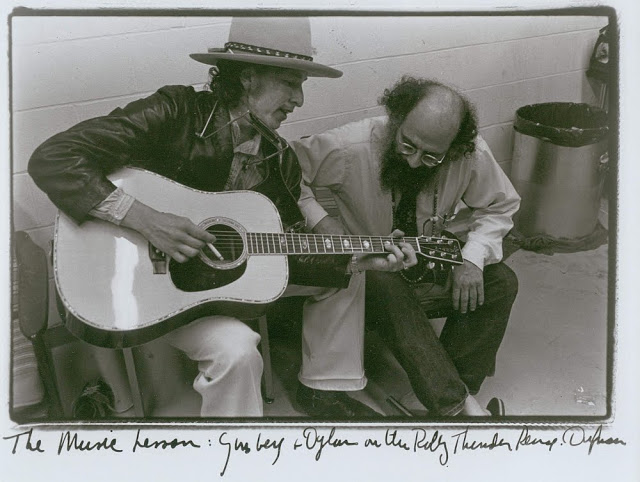 The Music Lesson: Ginsberg + Dylan on the Rolling Thunder Revue.